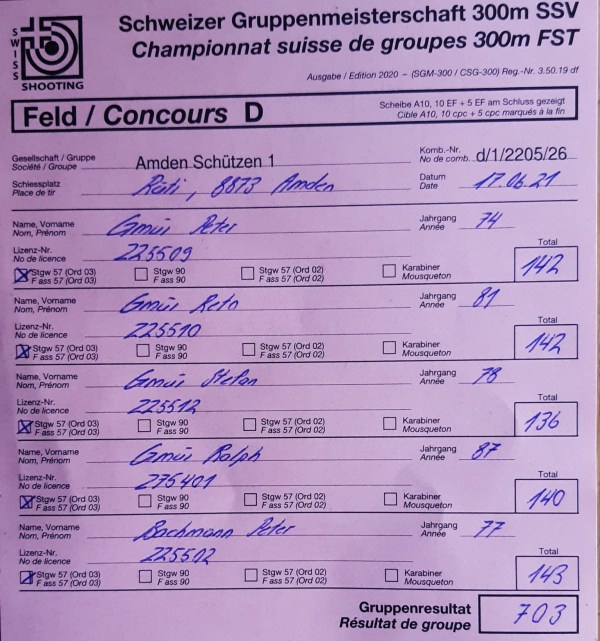 SWISS
SHOOTING
Schweizer Gruppenmeisterschaft 300m SSV
Championnat suisse de groupes 300m FST
Ausgabe / Edition 2020 – (SGM-300 / CSG-300) Reg.-Nr. 3.50.19 df
Feld / Concours D
Scheibe A10, 10 EF + 5 EF am Schluss gezeigt
Cible A10, 10 cpc + 5 cpc marqués à la fin
Gesellschaft / Gruppe
Société / Groupe
Amden Schützen 1
Komb.-Nr.
No de comb. d/1/2205/26
Schiessplatz
Place de tir
Rüti, 8873 Amden
Datum
Date
17.06.21
Name, Vorname
Nom, Prénom
Gmür Peter
Jahrgang
Année
74
Lizenz-Nr.
No de licence
225509
Total
142
Stgw 57 (Ord 03)
F ass 57 (Ord 03)
Stgw 90
F ass 90
Stgw 57 (Ord 02)
F ass 57 (Ord 02)
Karabiner
Mousqueton
Name, Vorname
Nom, Prénom
Gmür Reto
Jahrgang
Année
81
Lizenz-Nr.
No de licence
225510
Total
142
Stgw 57 (Ord 03)
F ass 57 (Ord 03)
Stgw 90
F ass 90
Stgw 57 (Ord 02)
F ass 57 (Ord 02)
Karabiner
Mousqueton
Name, Vorname
Nom, Prénom
Gmür Stefan
Jahrgang
Année
78
Lizenz-Nr.
No de licence
225512
Total
136
Stgw 57 (Ord 03)
F ass 57 (Ord 03)
Stgw 90
F ass 90
Stgw 57 (Ord 02)
F ass 57 (Ord 02)
Karabiner
Mousqueton
Name, Vorname
Nom, Prénom
Gmür Ralph
Jahrgang
Année
87
Lizenz-Nr.
No de licence
275401
Total
140
Stgw 57 (Ord 03)
F ass 57 (Ord 03)
Stgw 90
F ass 90
Stgw 57 (Ord 02)
F ass 57 (Ord 02)
Karabiner
Mousqueton
Name, Vorname
Nom, Prénom
Bachmann Peter
Jahrgang
Année
77
Lizenz-Nr.
No de licence
225502
Total
143
Stgw 57 (Ord 03)
F ass 57 (Ord 03)
Stgw 90
F ass 90
Stgw 57 (Ord 02)
F ass 57 (Ord 02)
Karabiner
Mousqueton
Gruppenresultat
Résultat de groupe
703